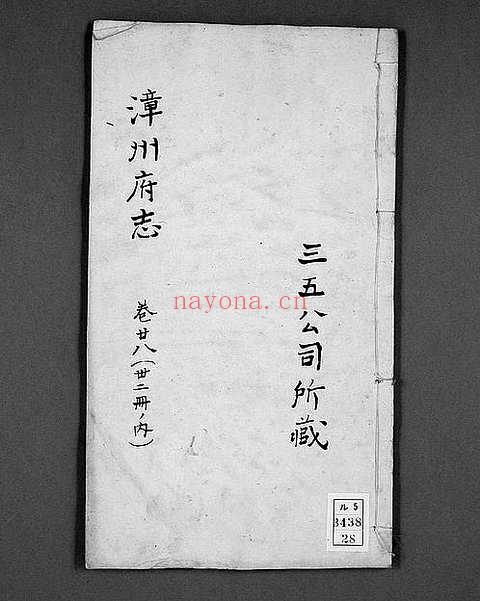 三五公司所藏
漳州府志
卷廿八（卅二冊ノ内）
nayona.cn
ル5
3438
28